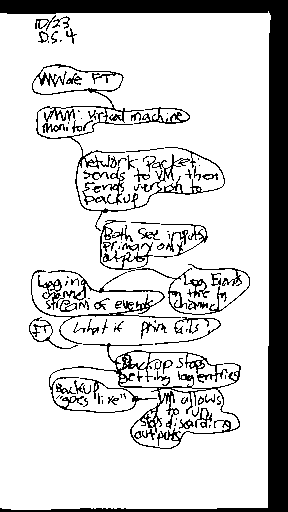 10/23
D.S. 4
VMWare FT
VMM: Virtual machine
monitor
Network Packet:
sends to VM, then
sends version to
backup
Both see inputs,
primary only
outputs
Logging
channel
stream of events
Log Events
in the
channel
FT
What if prim fails?
Backup stops
getting log entries
Backup
"goes live"
VM allows
to run,
stops discarding
outputs